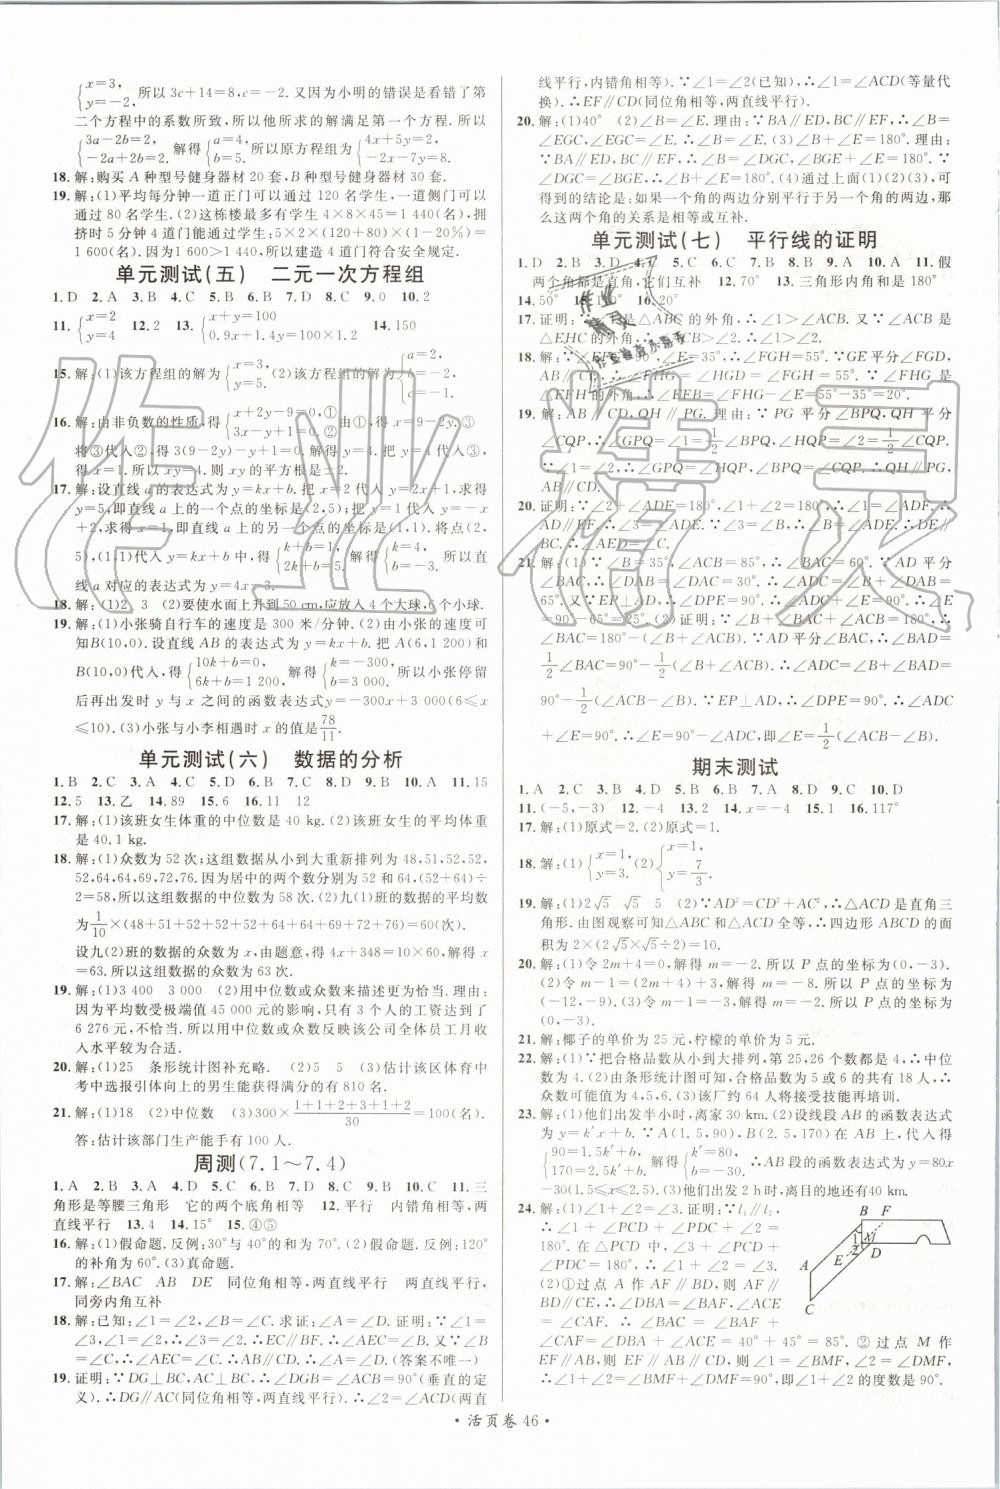 {x=3, y=-2, 所以 3c+14=8,c=-2. 又因为小明的错误是看错了第
二个方程中的系数所致,所以他所求的解满足第一个方程. 所以
{3a-2b=2, -2a+2b=2. 解得{a=4, b=5. 所以原方程组为{4x+5y=2, -2x-7y=8.
18. 解:购买 A 种型号健身器材 20 套,B 种型号健身器材 30 套.
19. 解:(1)平均每分钟一道正门可以通过 120 名学生,一道侧门可以
通过 80 名学生. (2)这栋楼最多有学生 4×8×45=1 440(名),拥
挤时 5 分钟 4 道门能通过:5×2×(120+80)×(1-20%)=
1 600(名). 因为 1 600>1 440,所以建造 4 道门符合安全规定.
单元测试(五) 二元一次方程组
1. D 2. A 3. B 4. C 5. B 6. B 7. D 8. C 9. 0 10. 2
11. {x=2 y=4 12. 2 13. {x+y=100 0.9x+1.4y=100×1.2 14. 150
15. 解:(1)该方程组的解为{x=3, y=5. (2)该方程组的解为{a=2, b=-2, c=-1.
16. 解:由非负数的性质,得{x+2y-9=0,① 3x-y+1=0.② 由①,得 x=9-2y.③
将③代入②,得 3(9-2y)-y+1=0. 解得 y=4. 将 y=4 代入③,
得 x=1. 所以 xy=4. 则 xy 的平方根是±2.
17. 解:设直线 a 的表达式为 y=kx+b. 把 x=2 代入 y=2x+1,求得
y=5,即直线 a 的一个点的坐标是(2,5);把 y=1 代入 y=-x
+2,求得 x=1,即直线 a 的另一个点的坐标是(1,1). 将点(2,
5),(1,1)代入 y=kx+b 中,得{k+b=1, 2k+b=5. 解得{k=4, b=-3. 所以
直线 a 对应的表达式为 y=4x-3.
18. 解:(1)2 3 (2)要使水面上升到 50 cm,应放入 4 个大球,6 个小球.
19. 解:(1)小张骑自行车的速度是 300 米/分钟. (2)由小张的速度可
知B(10,0). 设直线 AB 的表达式为 y=kx+b. 把 A(6,1 200)和
B(10,0)代入,得{10k+b=0, 6k+b=1 200. 解得{k=-300, b=3 000. 所以小张停留
后再出发时 y 与 x 之间的函数表达式y=-300x+3 000(6≤x
≤10). (3)小张与小李相遇时 x 的值是78/11.
单元测试(六) 数据的分析
1. B 2. C 3. A 4. C 5. D 6. B 7. B 8. C 9. B 10. A 11. 15
12. 5 13. 乙 14. 89 15. 6 16. 11 12
17. 解:(1)该班女生体重的中位数是 40 kg. (2)该班女生的平均体重
是 40.1 kg.
18. 解:(1)众数为 52 次;这组数据从小到大重新排列为 48,51,52,52,
52,64,64,69,72,76. 因为居中的两个数分别为 52 和 64,(52+64)÷
2=58,所以这组数据的中位数为 58 次. (2)九(1)班的数据的平均数
为 1/10×(48+51+52+52+52+64+64+69+72+76)=60(次).
设九(2)班的数据的众数为 x,由题意,得 4x+348=10×60,解得 x
=63. 所以这组数据的众数为 63 次.
19. 解:(1)3 400 3 000 (2)用中位数或众数来描述更为恰当. 理由:
因为平均数受极端值 45 000 元的影响,只有 3 个人的工资达到了
6 276 元,不恰当. 所以用中位数或众数反映该公司全体员工月收
入水平较为合适.
20. 解:(1)25 条形统计图补充略. (2)5 5 (3)估计该区体育中
考中选报引体向上的男生能获得满分的有 810 名.
21. 解:(1)18 (2)中位数 (3)300×(1+1+2+3+1+2)/30=100(名).
答:估计该部门生产能手有 100 人.
周测(7.1～7.4)
1. A 2. C 3. C 4. A 5. C 6. B 7. D 8. C 9. D 10. C 11. 三
角形是等腰三角形 它的两个底角相等 12. 平行 内错角相等,两
直线平行 13. 4 14. 15° 15. ④⑤
16. 解:(1)假命题. 反例:30°与 50°的和为 80°. (2)假命题. 反例:120°
的补角为 60°. (3)真命题.
17. 解:∠BAC AB DE 同位角相等,两直线平行 两直线平行,
同旁内角互补
18. 解:已知:∠1=∠2,∠B=∠C. 求证:∠A=∠D. 证明:∵∠1=
∠3,∠1=∠2,∴∠3=∠2. ∴EC∥BF. ∴∠AEC=∠B. 又∵∠B
=∠C,∴∠AEC=∠C. ∴AB∥CD. ∴∠A=∠D. (答案不唯一)
19. 证明:∵DG⊥BC,AC⊥BC,∴∠DGB=∠ACB=90°(垂直的定
义). ∴DG∥AC(同位角相等,两直线平行). ∴∠2=∠ACD(两直
线平行,内错角相等). ∵∠1=∠2(已知),∴∠1=∠ACD(等量代
换). ∴EF∥CD(同位角相等,两直线平行).
20. 解:(1)40° (2)∠B=∠E. 理由:∵BA∥ED,BC∥EF,∴∠B=
∠EGC,∠EGC=∠E. ∴∠B=∠E. (3)∠B+∠E=180°. 证明:
∵BA∥ED,BC∥EF,∴∠B=∠DGC,∠BGE+∠E=180°. ∵
∠DGC=∠BGE,∴∠B+∠E=180°. (4)通过(1)(2)(3),可
得到的结论是:如果一个角的两边分别平行于另一个角的两边,那
么这两个角的关系是相等或互补.
单元测试(七) 平行线的证明
1. D 2. B 3. D 4. C 5. C 6. C 7. D 8. B 9. A 10. A 11. 假
两个角都是直角,它们互补 12. 70° 13. 三角形内角和是 180°
14. 50° 15. 120° 16. 20°
17. 证明:∵∠1是△ABC 的外角,∴∠1>∠ACB. 又∵∠ACB 是
△EHC 的外角,∴∠ACB>∠2. ∴∠1>∠2.
18. 解: =90°,∠E=35°,∴∠FGH=55°. ∵GE 平分∠FGD,
AB∥CD,∴∠FHG=∠HGD=∠FGH=55°. ∵∠FHG 是
△EFH 的外角,∴∠EFB=∠FHG-∠E=55°-35°=20°.
19. 解:AB∥CD,QH∥PG. 理由:∵PG 平分∠BPQ,QH 平分
∠CQP,∴∠GPQ=∠1=1/2∠BPQ,∠HQP=∠2=1/2∠CQP.
∵∠1=∠2,∴∠GPQ=∠HQP,∠BPQ=∠CQP. ∴QH∥PG,
AB∥CD.
20. 证明:∵∠2+∠ADF=180°,∠1+∠2=180°,∴∠1=∠ADF. ∴
AD∥EF. ∴∠3=∠ADE. ∵∠3=∠B,∴∠B=∠ADE. ∴DE∥
BC. ∴∠AED=∠C.
21. 解:(1)∵∠B=35°,∠ACB=85°,∴∠BAC=60°. ∵AD 平分
∠BAC,∴∠DAC=30°. ∴∠ADC=180°-∠DAC-∠ACB=
65°. 又∵EP⊥AD,∴∠DPE=90°. ∴∠E=90°-∠ADC=
90°-65°=25°. (2)证明:∵∠B+∠BAC+∠ACB=180°,
∴∠BAC=180°-(∠B+∠ACB). ∵AD 平分∠BAC,∴∠BAD=
1/2∠BAC=90°-1/2(∠B+∠ACB). ∴∠ADC=∠B+∠BAD=
90°-1/2(∠ACB-∠B). ∵EP⊥AD,∴∠DPE=90°. ∴∠ADC
+∠E=90°. ∴∠E=90°-∠ADC,即∠E=1/2(∠ACB-∠B).
期末测试
1. A 2. C 3. B 4. A 5. D 6. D 7. A 8. D 9. C 10. D
11. (-5,-3) 12. -4 13. 2 14. x=-4 15. 1 16. 117°
17. 解:(1)原式=2. (2)原式=1.
18. 解:(1){x=1, y=3. (2){x=1, y=7/3.
19. 解:(1)2√5 √5 5 (2)∵AD²=CD²+AC²,∴△ACD 是直角三
角形. 由图观察可知△ABC 和△ACD 全等,∴四边形 ABCD 的面
积为 2×(2√5×√5÷2)=10.
20. 解:(1)令 2m+4=0,解得 m=-2. 所以 P 点的坐标为(0,-3).
(2)令 m-1-(2m+4)=3,解得 m=-8. 所以 P 点的坐标为
(-12,-9). (3)令 m-1=-3,解得 m=-2. 所以 P 点的坐标为
(0,-3).
21. 解:椰子的单价为 25 元,柠檬的单价为 5 元.
22. 解:(1)∵把合格品数从小到大排列,第 25,26 个数都是 4,∴中位
数为 4. (2)由条形统计图可知,合格品数为 5 与 6 的共有 18 人,∴
众数可能值为 4,5,6. (3)该厂约 64 人将接受技能再培训.
23. 解:(1)他们出发半小时,离家 30 km. (2)设线段 AB 的函数表达式
为 y=k′x+b′. ∵A(1.5,90),B(2.5,170)在 AB 上,∴
{90=1.5k′+b′, 170=2.5k′+b′. 解得{k′=80, b′=-30. ∴AB 段的函数表达式为 y=80x
-30(1.5≤x≤2.5). (3)他们出发 2 h 时,离目的地还有40 km.
24. 解:(1)∠1+∠2=∠3. 证明:∵l₁∥l₂,
∴∠1+∠PCD+∠PDC+∠2=
180°. 在△PCD 中,∠3+∠PCD+
∠PDC=180°,∴∠1+∠2=∠3.
(2)①过点 A 作 AF∥BD,则 AF∥
BD∥CE,∴∠DBA=∠BAF,∠ACE
=∠CAF,∴∠BAC=∠BAF+
∠CAF=∠DBA+∠ACE=40°+45°=85°. ②过点 M 作
EF∥AB,则EF∥AB∥CD,∴∠1=∠BMF,∠2=∠DMF,
∴∠1+∠2=∠BMF+∠DMF=90°,即∠1+∠2的度数是 90°.
B F
1 M
E 2 D
A
C
• 活页卷 46 •
作业精灵